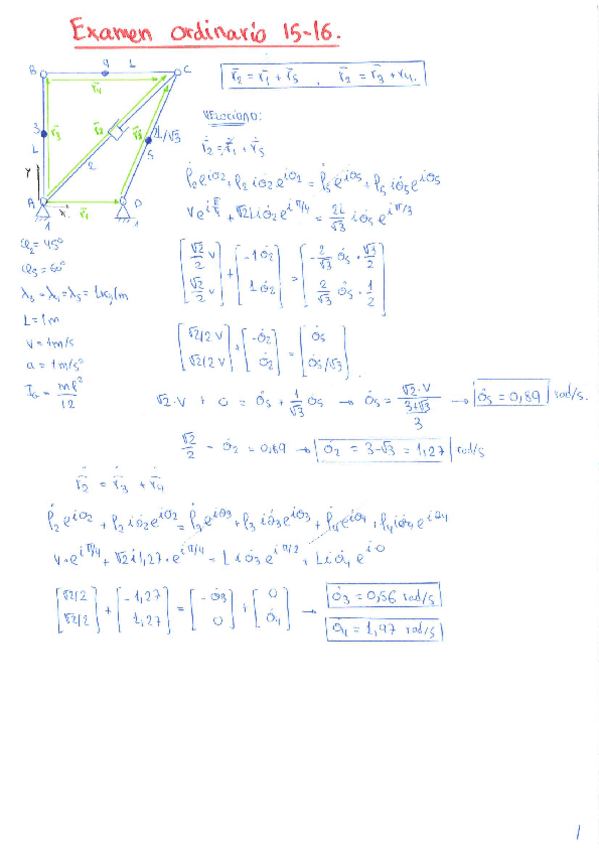 Examen ordinario 15-16.
r̄₂ = r̄₁ + r̄₅ , r̄₂ = r̄₃ + r̄₄.
B 4 L C
r̄₄
3 r̄₃ r̄₂ r̄₅ L/√3
L 2 5
Y
A x r̄₁ D
1 1
VELOCIDAD:
ṙ₂ = ṙ₁ + ṙ₅
ρ̇₂e^iθ₂ + ρ₂iθ̇₂e^iθ₂ = ρ̇₅e^iθ₅ + ρ₅iθ̇₅e^iθ₅
Ve^iπ/4 + √2Liθ̇₂e^iπ/4 = 2L/√3 iθ̇₅e^iπ/3
φ₂ = 45º
φ₅ = 60º
λ₃ = λ₄ = λ₅ = 1kg/m
L = 1m
V = 1m/s
a = 1m/s²
I_G = mℓ²/12
[√2/2 V; √2/2 V] + [-1θ̇₂; 1θ̇₂] = [-2/√3 θ̇₅ · √3/2; 2/√3 θ̇₅ · 1/2]
[√2/2 V; √2/2 V] + [-θ̇₂; θ̇₂] = [θ̇₅; θ̇₅/√3]
√2·V + 0 = θ̇₅ + 1/√3 θ̇₅ → θ̇₅ = √2·V / (3+√3)/3 → θ̇₅ = 0,89 rad/s.
√2/2 - θ̇₂ = 0,89 → θ̇₂ = 3-√3 = 1,27 rad/s
ṙ₂ = ṙ₃ + ṙ₄
ρ̇₂e^iθ₂ + ρ₂iθ̇₂e^iθ₂ = ρ̇₃e^iθ₃ + ρ₃iθ̇₃e^iθ₃ + ρ̇₄e^iθ₄ + ρ₄iθ̇₄e^iθ₄
V·e^iπ/4 + √2i1,27·e^iπ/4 = Liθ̇₃e^iπ/2 + Liθ̇₄e^i0
[√2/2; √2/2] + [-1,27; 1,27] = [-θ̇₃; 0] + [0; θ̇₄] → θ̇₃ = 0,56 rad/s
θ̇₄ = 1,97 rad/s
1